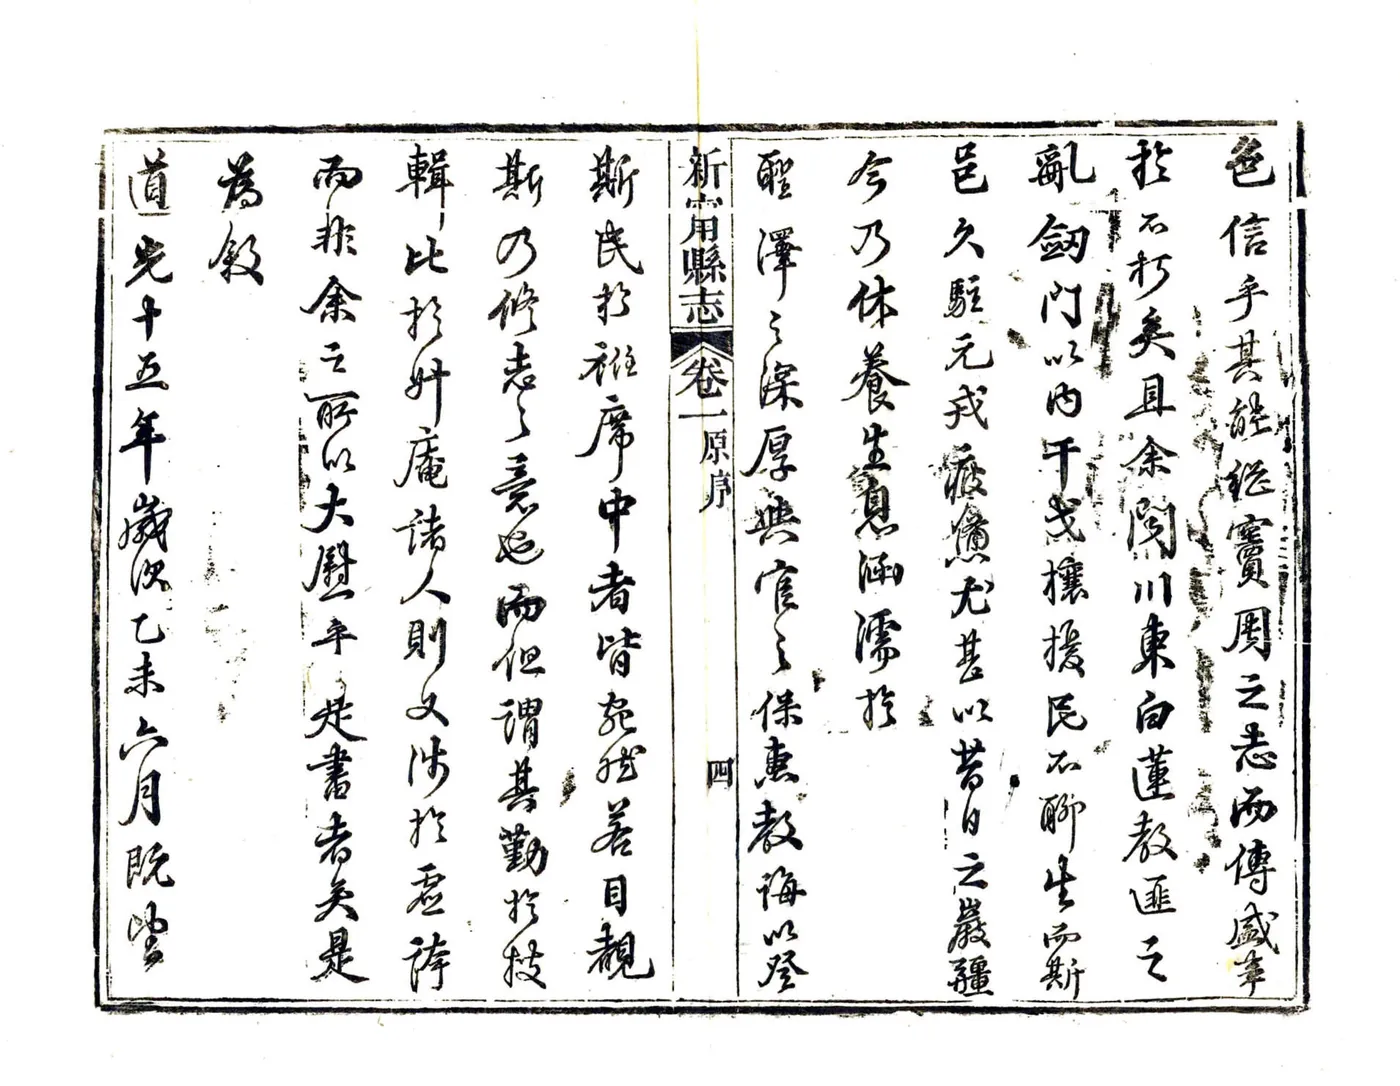 色信乎其能繼竇周之志而傳盛事
於不朽矣且余閱川東白蓮教匪之
亂劒門以內干戈攘擾民不聊生而斯
邑久駐元戎疲憊尤甚以昔日之巖疆
今乃休養生息涵濡於
聖澤之深厚與官之保惠教誨以登
新甯縣志 卷一 原序 四
斯民於袵席中者皆宛然若目覩
斯乃修志之意也而但謂其勤於技
輯比於升庵諸人則又涉於虛誇
而非余之所以大慰乎是書者矣是
為敘
道光十五年歲次乙未六月既望